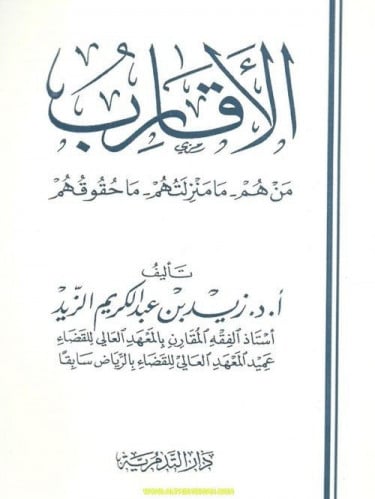 الأقارب
مَن هُم - مَا مَنْزِلَتُهُمْ - مَا حُقُوقُهُم
تأليفُ
أ. د. زيد بن عبد الكريم الزّيد
أستاذ الفِقْهِ المُقَارِن بِالمَعْهَدِ العَالي للقضاء
عميد المَعْهَد العَالي للقضاء بالرّياض سَابقًا
دَارُ التَّدمُريَّة